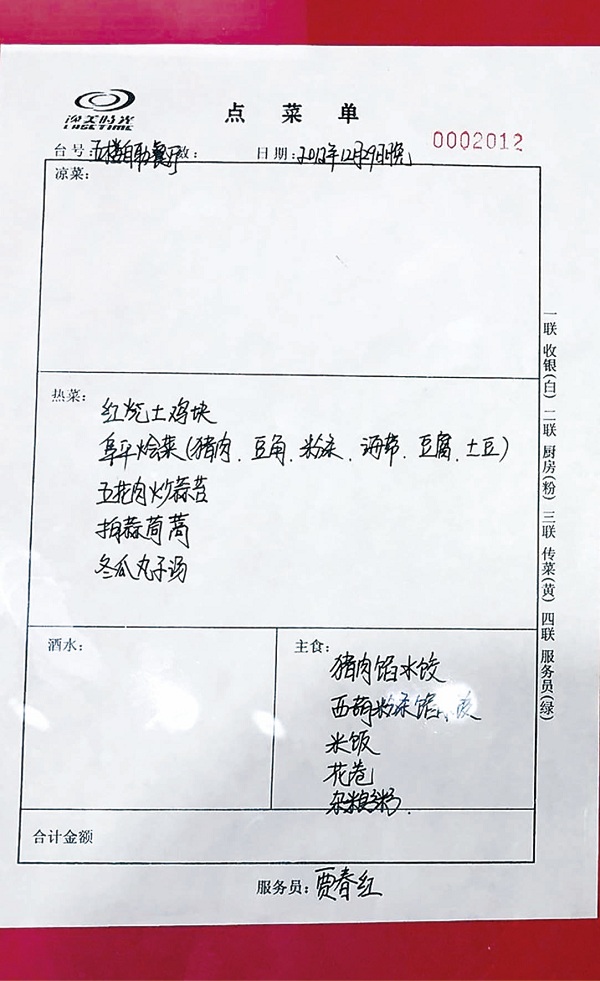 LASETIME
点菜单
0002012
台号:五楼自助餐厅 数: 日期:2012年12月29日晚
凉菜:
热菜:
红烧土鸡块
阜平烩菜(猪肉、豆角、粉条、海带、豆腐、土豆)
五花肉炒蒜苔
拍蒜茼蒿
冬瓜丸子汤
酒水:
主食:
猪肉馅水饺
西葫粉条馅水饺
米饭
花卷
杂粮粥.
合计金额
服务员:贾春红
一联 收银(白) 二联 厨房(粉) 三联 传菜(黄) 四联 服务员(绿)